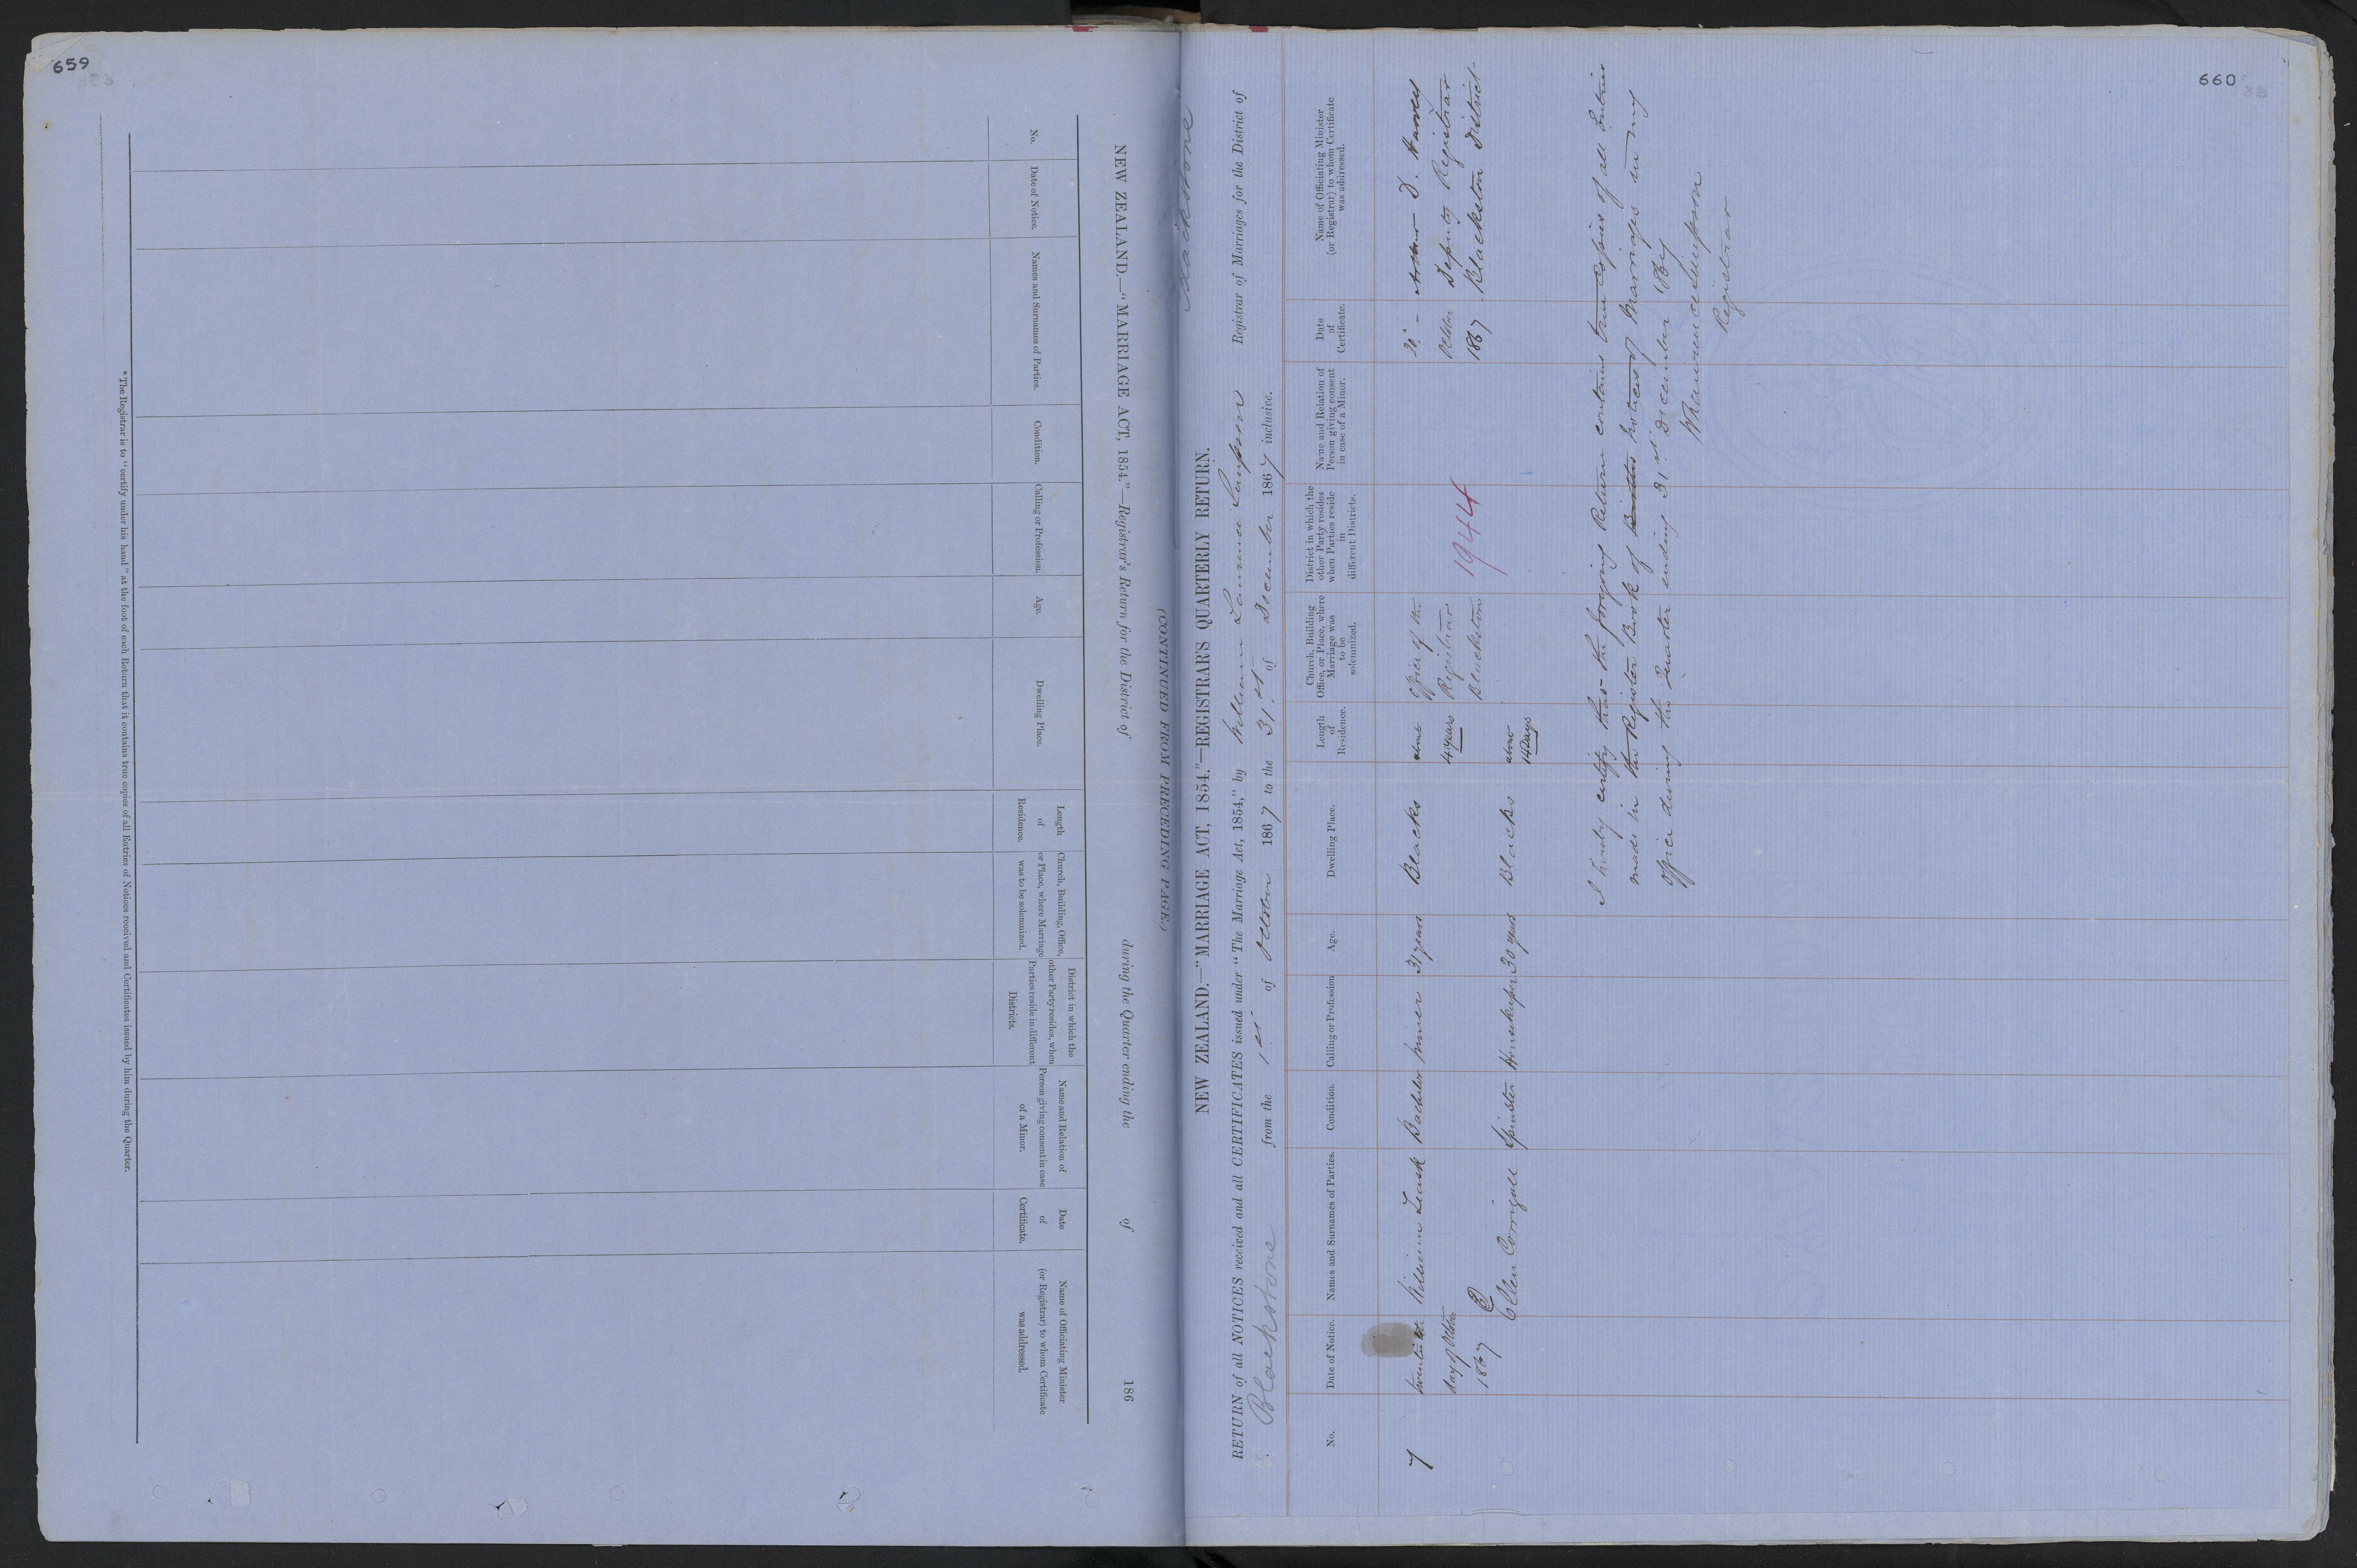 659
NEW ZEALAND.—"MARRIAGE ACT, 1854."—Registrar's Return for the District of during the Quarter ending the of 186
(CONTINUED FROM PRECEDING PAGE.)
No.
Date of Notice.
Names and Surnames of Parties.
Condition.
Calling or Profession.
Age.
Dwelling Place.
Length
of
Residence.
Church, Building, Office,
or Place, where Marriage
was to be solemnized.
District in which the
other Party resides, when
Parties reside in different
Districts.
Name and Relation of
Person giving consent in case
of a Minor.
Date
of
Certificate.
Name of Officiating Minister
(or Registrar) to whom Certificate
was addressed.
* The Registrar is to "certify under his hand" at the foot of each Return that it contains true copies of all Entries of Notices received and Certificates issued by him during the Quarter.
660
Blackstone
NEW ZEALAND.—"MARRIAGE ACT, 1854."—REGISTRAR'S QUARTERLY RETURN.
RETURN of all NOTICES received and all CERTIFICATES issued under "The Marriage Act, 1854," by William Laurence Simpson Registrar of Marriages for the District of
Blackstone from the 1st of October 1867 to the 31st of December 1867 inclusive.
No.
Date of Notice.
Names and Surnames of Parties.
Condition.
Calling or Profession
Age.
Dwelling Place.
Length
of
Residence.
Church, Building
Office, or Place, where
Marriage was
to be
solemnized.
District in which the
other Party resides
when Parties reside
in
different Districts.
Name and Relation of
Person giving consent
in case of a Minor.
Date
of
Certificate.
Name of Officiating Minister
(or Registrar) to whom Certificate
was addressed.
7
day of October
1867
William Leask
Bachelor
Miner
31 years
Blacks
about
4 years
Office of the
Registrar
Blackstone
1944
20
October
1867
D. Harvey
Deputy Registrar
Blackston District
Ellen Corrigall
Spinster
Housekeeper
30 years
Blacks
about
14 Days
I hereby certify that the foregoing Return contains true Copies of all Entries
made in the Register Book of Births Notices of Marriages in my
Office during the Quarter ending 31st December 1867
Registrar